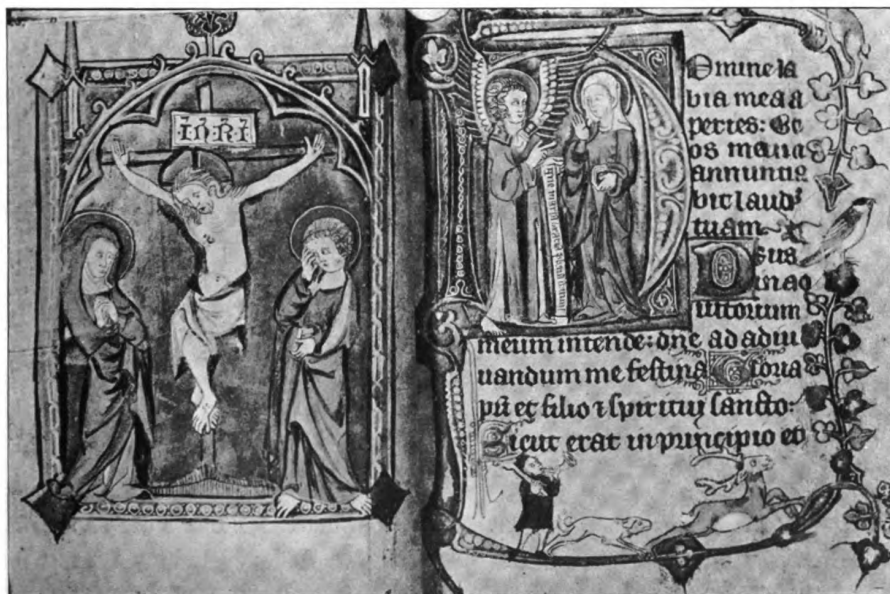 INRI
Domine la
bia mea a
peries: Et
os meum
annuntia
bit laudē
tuam
Deus
in ad
iutorium
meum intende: dnē ad adiu
uandum me festina Gloria
pri et filio et spiritui sancto:
Sicut erat in principio et